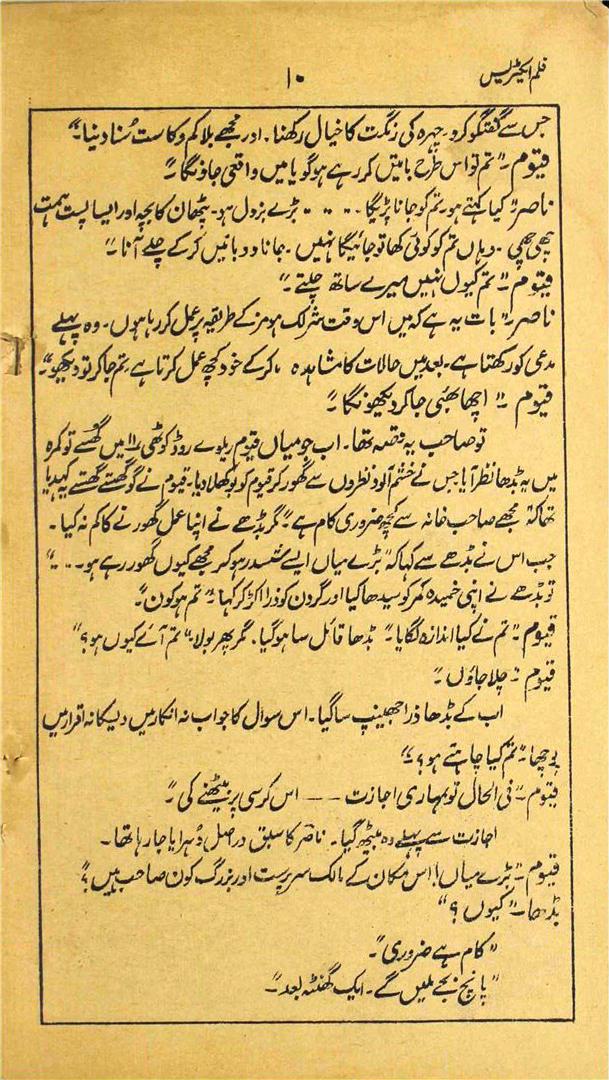 فلم ایکٹریس
۱۰
جس سے گفتگو کرو۔ چہرہ کی رنگت کا خیال رکھنا۔ اور مجھے بلا کم و کاست سُنا دینا۔"
قیوم۔ "تم تو اس طرح باتیں کر رہے ہو گویا میں واقعی جاؤنگا۔"
ناصر۔ "کیا کہتے ہو۔ تم کو جانا پڑیگا ۔۔۔۔ بڑے بزدل ہو۔ پٹھان کا بچہ اور ایسا پست ہمت
چھی چھی۔ وہاں تم کو کوئی کھا تو جائیگا نہیں۔ جانا دو باتیں کر کے چلے آنا۔"
قیوم۔ "تم کیوں نہیں میرے ساتھ چلتے۔"
ناصر۔ "بات یہ ہے کہ میں اس وقت شرلک ہومز کے طریقہ پر عمل کر رہا ہوں۔ وہ پہلے
مدعی کو رکھتا ہے۔ بعد میں حالات کا مشاہدہ کر کے خود کچھ عمل کرتا ہے۔ تم جا کر تو دیکھو۔"
قیوم۔ "اچھا بھئی جا کر دیکھونگا۔"
تو صاحب یہ قصہ تھا۔ اب جو میاں قیوم ریلوے روڈ کوٹھی میں گھُسے تو کمرہ
میں یہ بڈھا نظر آیا جس نے خشم آلود نظروں سے گھور کر قیوم کو بوکھلا دیا۔ قیوم نے گو گھستے گھستے کہدیا
تھا کہ مجھے صاحب خانہ سے کچھ ضروری کام ہے۔" مگر بڈھے نے اپنا عمل گھورنے کا کم نہ کیا۔
جب اس نے بڈھے سے کہا کہ "بڑے میاں ایسے ششدر ہو کر مجھے کیوں گھور رہے ہو۔۔۔"
تو بڈھے نے اپنی خمیدہ کمر کو سیدھا کیا اور گردن کو ذرا اکڑ کر کہا۔ "تم ہو کون۔"
قیوم۔ "تم نے کیا اندازہ لگایا۔" بڈھا قائل سا ہو گیا۔ مگر پھر بولا۔ "تم آئے کیوں ہو؟"
قیوم۔ "چلا جاؤں۔"
اب کے بڈھا ذرا جھینپ سا گیا۔ اس سوال کا جواب نہ انکار میں دیسکا نہ اقرار میں
پوچھا۔ "تم کیا چاہتے ہو؟"
قیوم۔ "فی الحال تو تمہاری اجازت —— اس کرسی پر بیٹھنے کی۔"
اجازت سے پہلے وہ بیٹھ گیا۔ ناصر کا سبق دراصل دُہرایا جا رہا تھا۔
قیوم۔ "بڑے میاں! اس مکان کے مالک سرپرست اور بزرگ کون صاحب ہیں؟"
بڈھا۔ "کیوں؟"
"کام ہے ضروری۔"
"پانچ بجے ملیں گے۔ ایک گھنٹہ بعد۔"